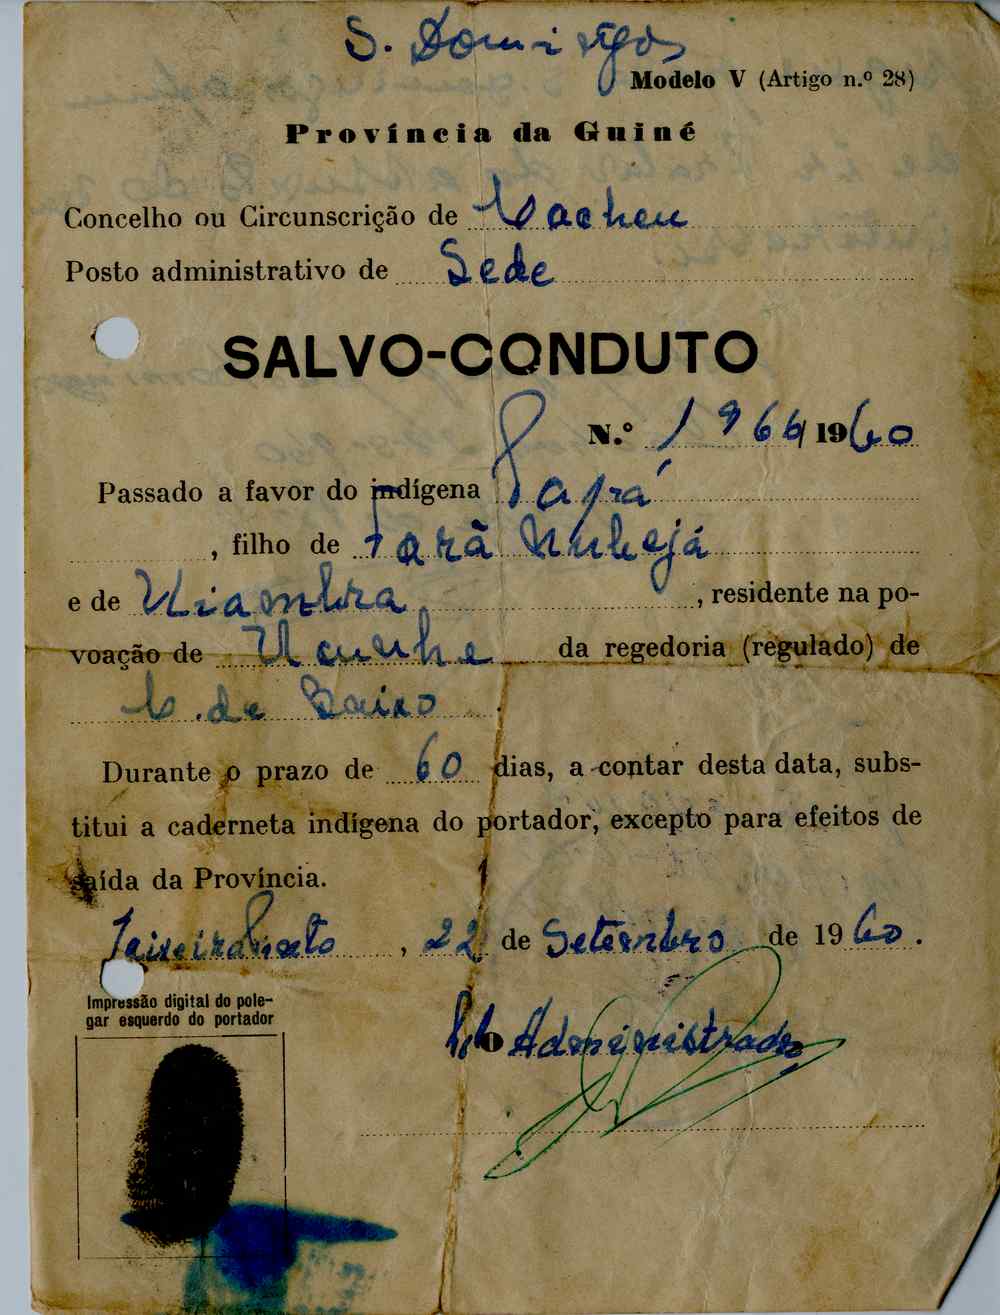 S. Domingos
Modelo V (Artigo n.º 28)
Província da Guiné
Concelho ou Circunscrição de Cacheu
Posto administrativo de Sede
SALVO-CONDUTO
N.º 1966/1960
Passado a favor do indígena Papá
, filho de Tarã
e de Uiambra, residente na po-
voação de Ucunhe da regedoria (regulado) de
C. de Baixo
Durante o prazo de 60 dias, a contar desta data, subs-
titui a caderneta indígena do portador, excepto para efeitos de
saída da Província.
Teixeira Pinto, 22 de Setembro de 1960.
Impressão digital do pole-
gar esquerdo do portador
O Administrador